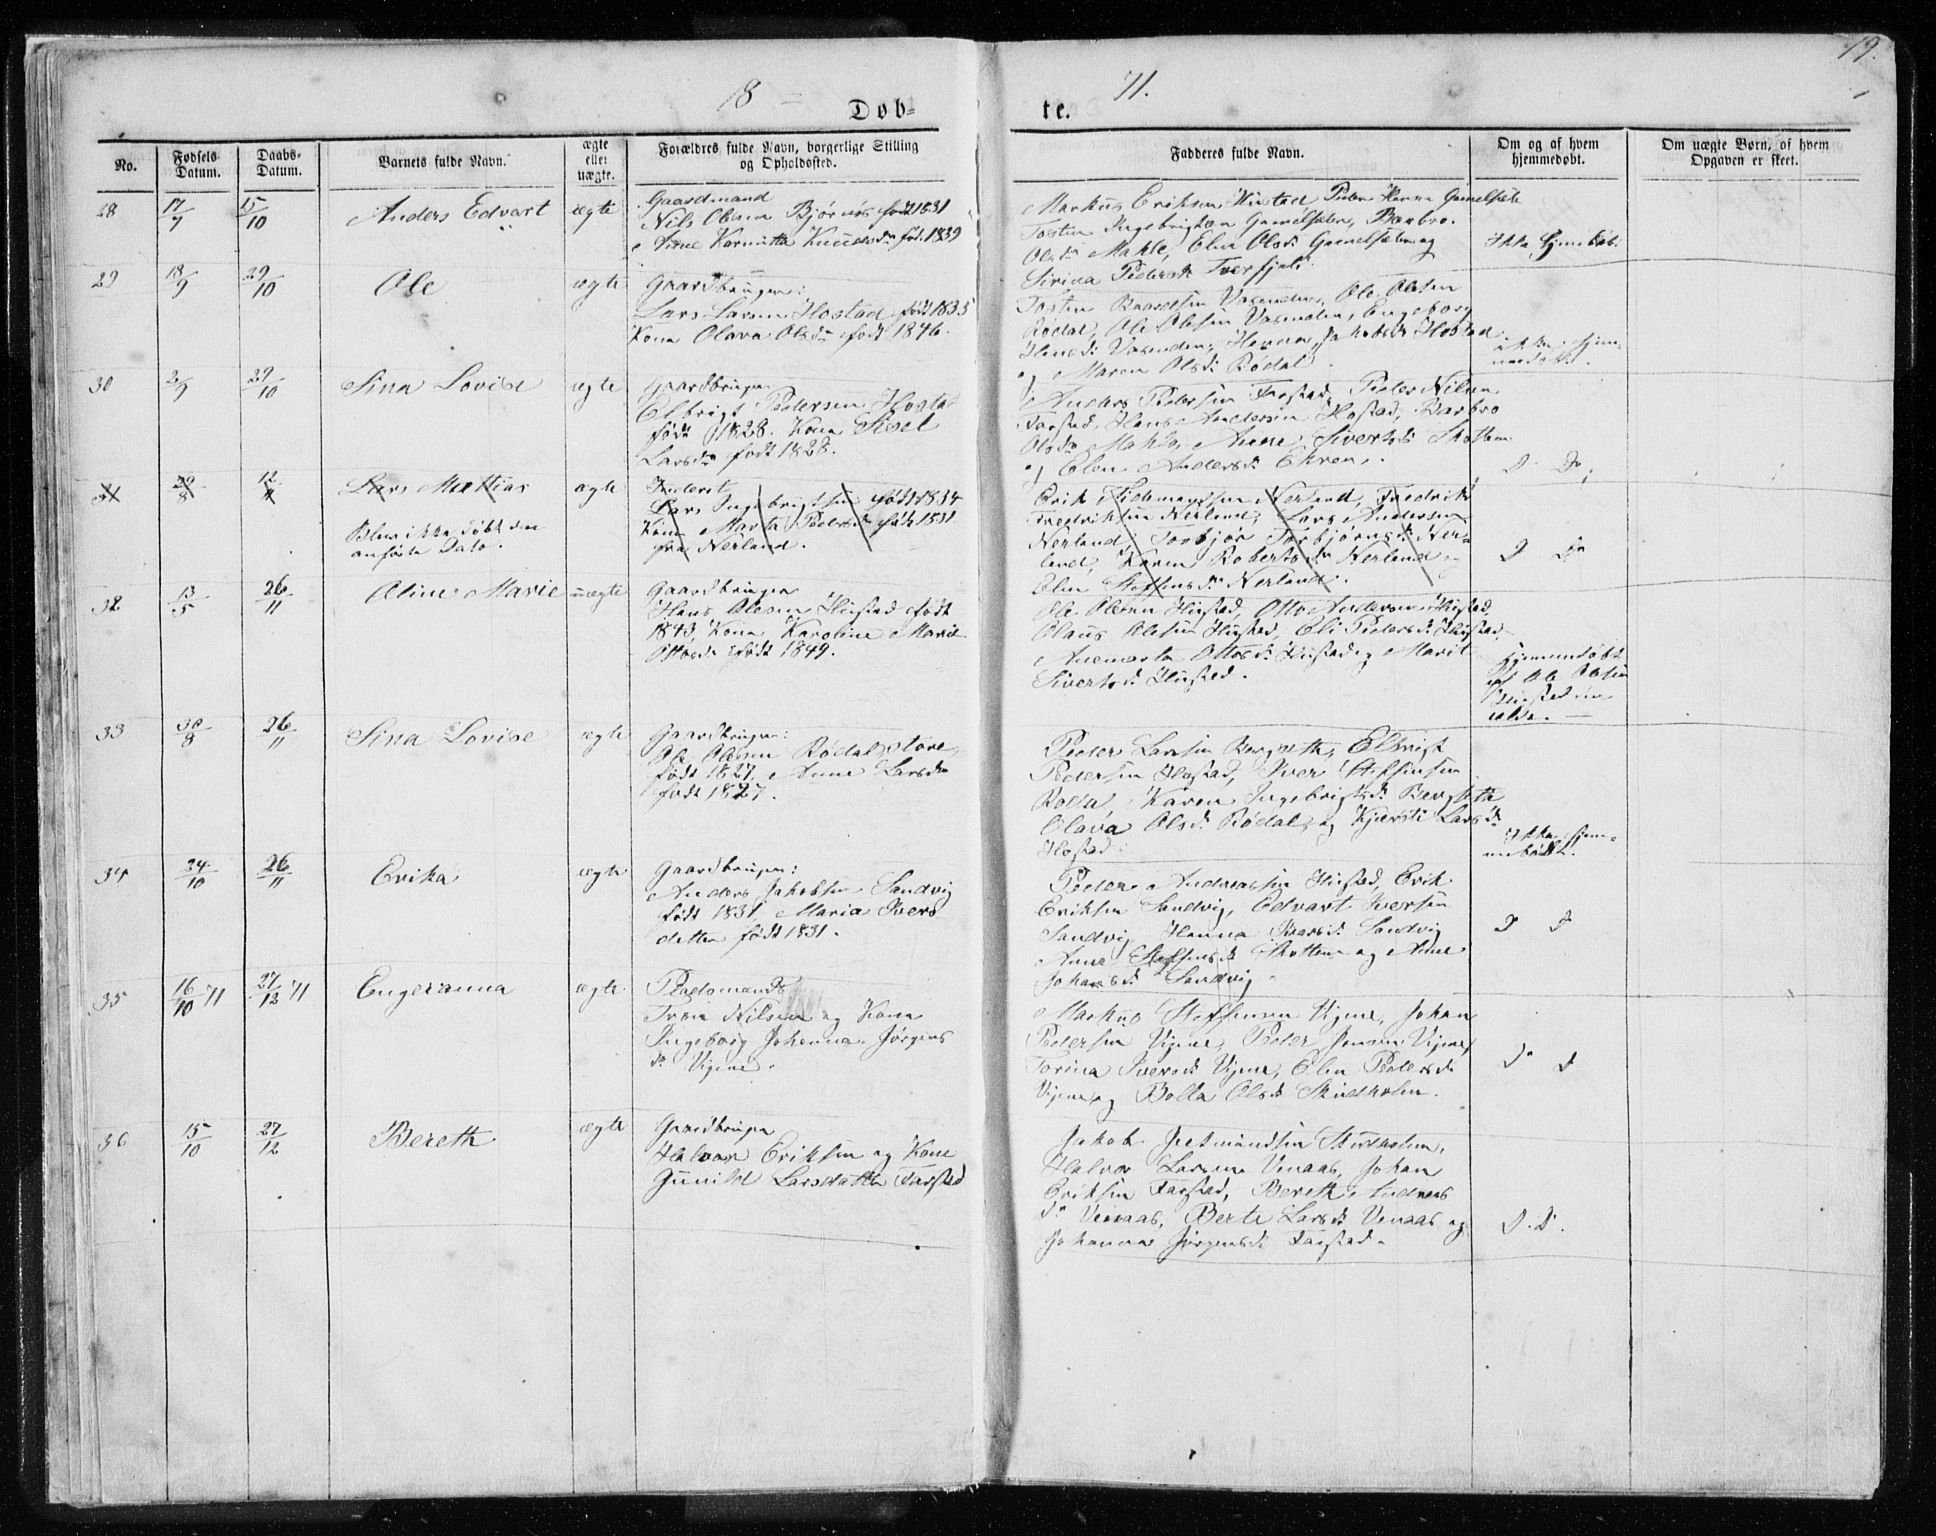 19.
18 71.
Døb- te.
No.
Fødsels Datum.
Daabs- Datum.
Barnets fulde Navn.
ægte eller uægte.
Forældres fulde Navn, borgerlige Stilling og Opholdssted.
Fadderes fulde Navn.
Om og af hvem hjemmedøbt.
Om uægte Børn, af hvem Opgaven er skeet.
28 17/7 15/10 Anders Edvart ægte
Gaardmand
Nils Olsen Bjørnøs født 1831
Kunedsdr født 1839
Markus Eriksen Hustad, Peder
Tosten Ingebrigtsen Gammelsæter, Barbro
Olsdr Mahle, Elen Olsdr Gammelsæter og
Sirina Pedersdr Tverfjeld.
Ikke hjemmedøbt.
29 18/9 29/10 Ole ægte
Gaardbruger:
Lars Larsen Hostad født 1835
Kona Olava Olsdr født 1846.
Tosten Baardsen Vasenden, Ole Olsen
Rødal, Ole Olsen Vasenden, Engeborg
Hansdr Vasenden, Hanna Jakobsdr Hostad
og Maren Olsdr Rødal.
ikke hjem-
medøbt.
30 2/9 29/10 Sina Lovise ægte
Gaardbruger
Elbrigt Pedersen Hostad
født 1828. Kona Sisel
Larsdr født 1828.
Anders Pedersen Farstad, Peder Nilsen
Farstad, Hans Andersen Hostad, Barbro
Olsdr Mahle, Anne Sivertsdr Skotten
og Elen Andersdr Ekren.
D Do
31 29/8 12/11 Lars Mattias ægte
Blev ikke døbt den
anførte Dato.
Inderst
Lars Ingebrigtsen født 1834
Kona Marta Pedersdr født 1831
fra Nerland.
Erik Nerland, Fredrik
Fredriksen Nerland, Lars Andersen
Nerland, Torbjør Torbjørnsdr Ner-
land, Karen Robertsdr Nerland
Elen Steffensdr Nerland.
D Do
32 13/5 26/11 Aline Marie uægte
Gaardbruger
Hans Olsen Hustad født
1843, Kona Karoline Marie
Ottosdr født 1849.
Ole Olsen Hustad, Otto Andersen Hustad,
Olaus Olsen Hustad, Eli Pedersdr Hustad,
Anemarta Ottosdr Hustad og Marit
Sivertsdr Hustad.
Hjemmedøbt
af Ole Olsen
Hustad
33 30/8 26/11 Sina Lovise ægte
Gaardbruger:
Ole Olsen Rødal store
født 1827. Anne Larsdr
født 1827.
Peder Larsen Bergseth, Elbrigt
Pedersen Hostad, Iver Steffensen
Karen Ingebrigtsdr Bergseth
Olava Olsdr Rødal, og Kjersti Larsdr
Hostad.
Ikke hjem-
medøbt.
34 24/10 26/11 Erika ægte
Gaardbruger:
Anders Jakobsen Sandvig
født 1831, Maria Ivers
datter født 1831.
Peder Andreassen Hustad, Erik
Eriksen Sandvig, Edvart Iversen
Sandvig, Hanna Iversdr Sandvig
Anne Steffensdr Skotten og Anne
Johansdr Sandvig
D D
35 16/10 71 27/12 71 Engeranna ægte
Pladsmand
Tron Nilsen og Kona
Ingeborg Johanna Jørgens
dr Vigene.
Markus Steffensen Vigene, Johan
Pedersen Vigene, Peder Jonsen Vigene,
Torina Iversdr Vigene, Elen Pedersdr
Vigene og Bolla Olsdr Skudholm.
D D
36 15/10 27/12 Bereth ægte
Gaardbruger
Halvor Eriksen og Kone
Gunild Larsdatter Farstad
Jakob Gudmundsen Skudholm,
Halvor Larsen Venaas, Johan
Eriksen Farstad, Bereth Andreas
dr Venaas, Berte Larsdr Venaas og
Johanna Jørgensdr Farstad.
D. D.